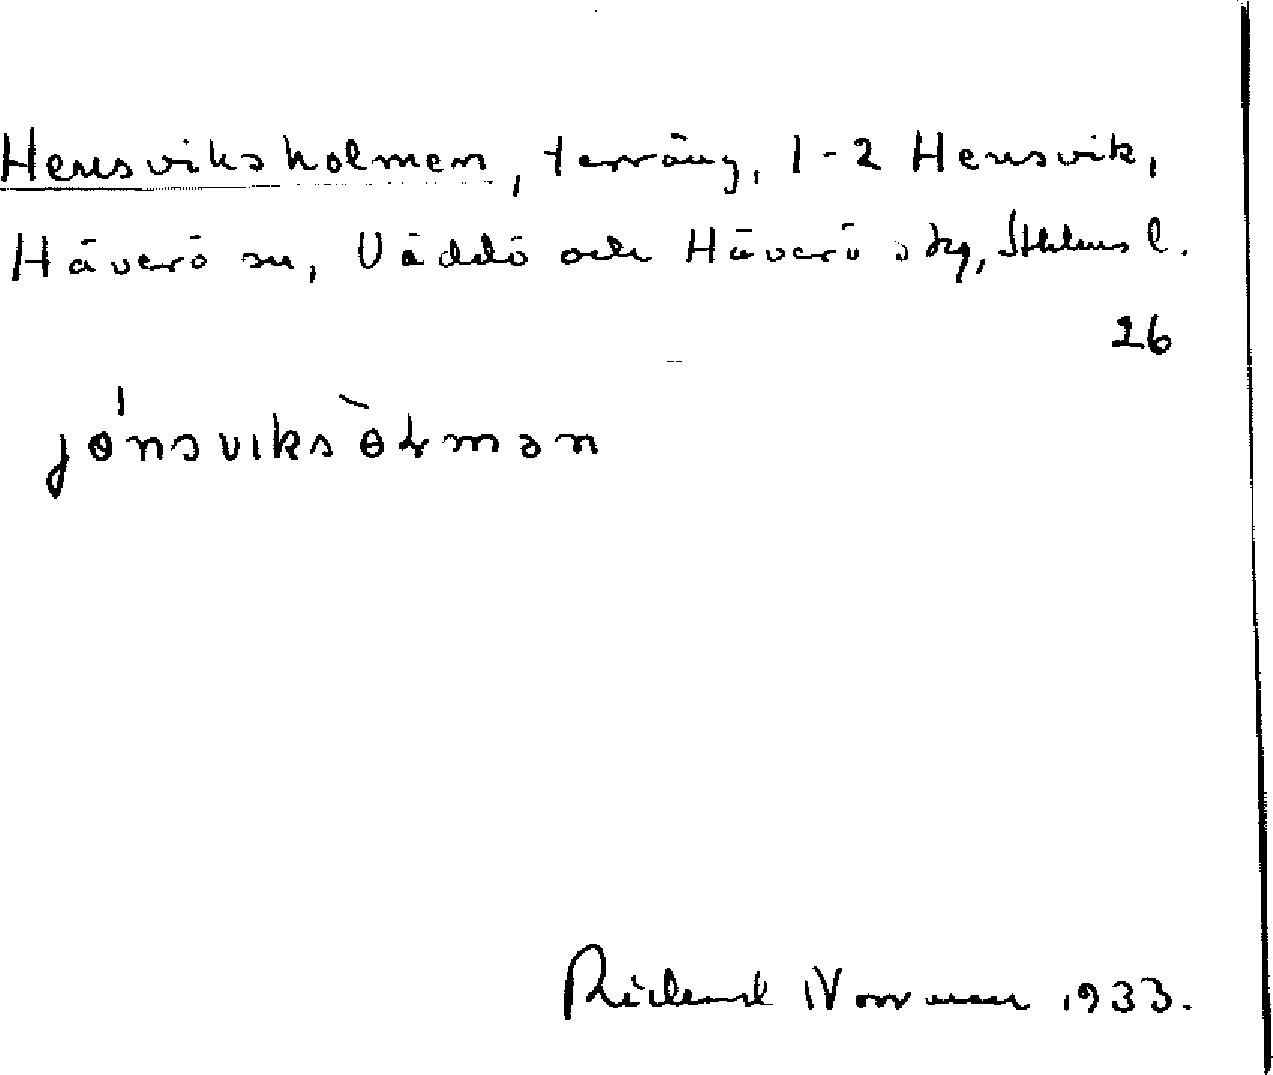 Hensviksholmen, terräng, 1-2 Hensvik,
Häverö sn, Väddö och Häverö skg, Sthlms l.
26
jɵnsviksɵLmən
Rickard Norrman 1933.